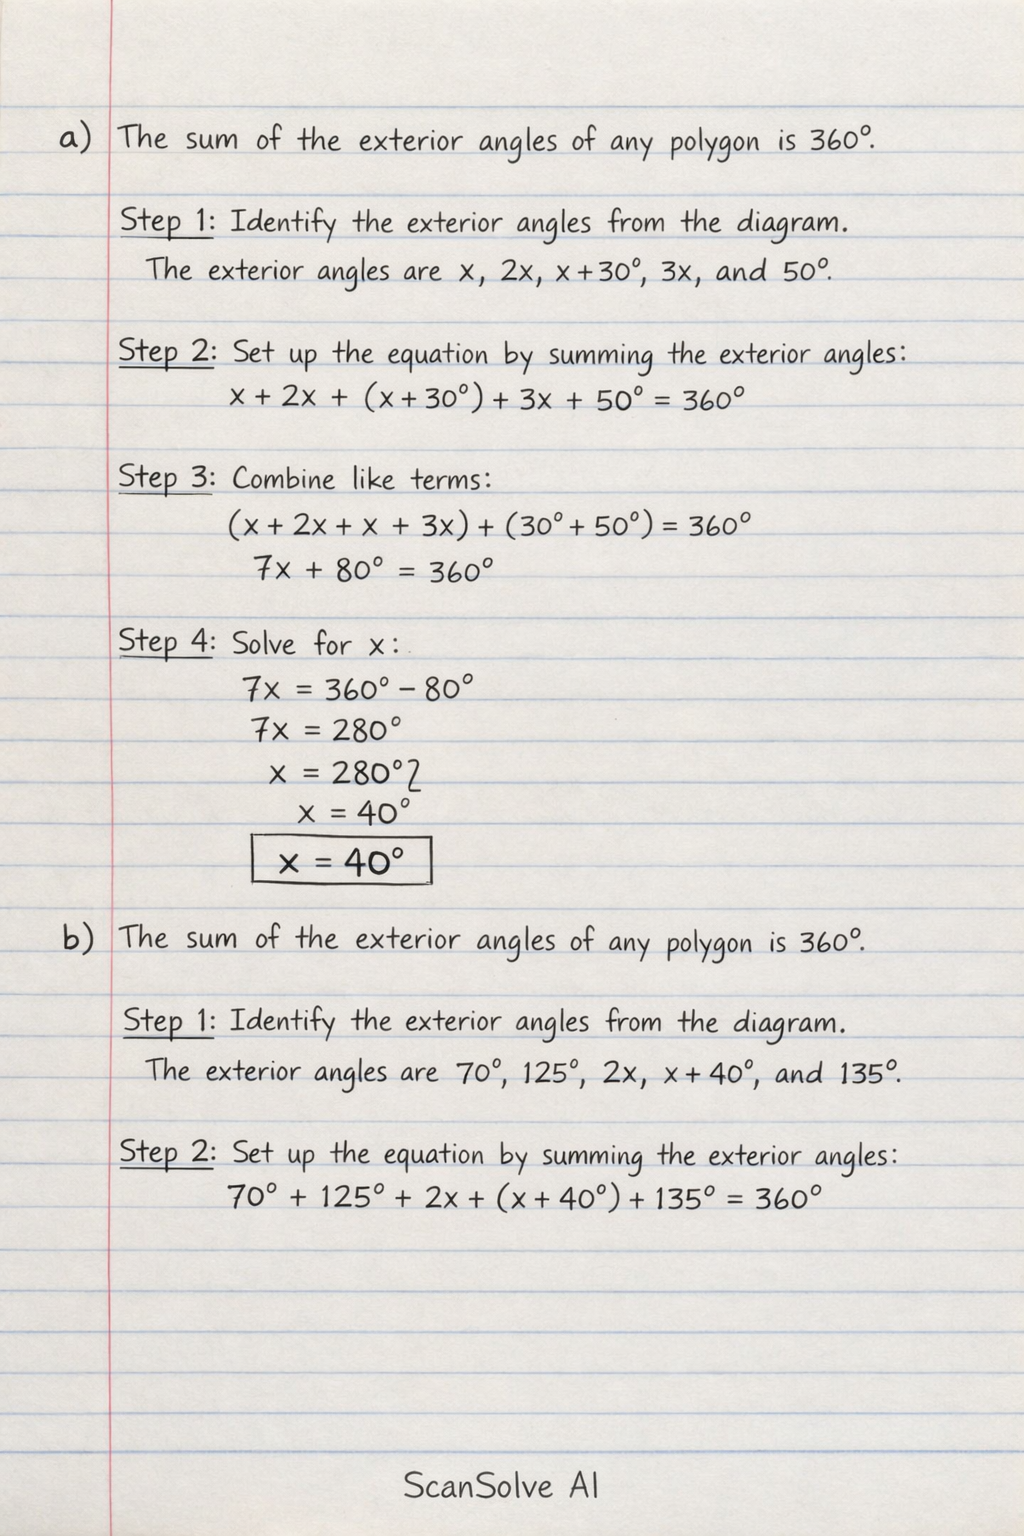 a) The sum of the exterior angles of any polygon is 360°.
Step 1: Identify the exterior angles from the diagram.
The exterior angles are x, 2x, x+30°, 3x, and 50°.
Step 2: Set up the equation by summing the exterior angles:
x + 2x + (x+30°) + 3x + 50° = 360°
Step 3: Combine like terms:
(x + 2x + x + 3x) + (30° + 50°) = 360°
7x + 80° = 360°
Step 4: Solve for x:
7x = 360° – 80°
7x = 280°
x = 280°2
x = 40°
x = 40°
b) The sum of the exterior angles of any polygon is 360°.
Step 1: Identify the exterior angles from the diagram.
The exterior angles are 70°, 125°, 2x, x+40°, and 135°.
Step 2: Set up the equation by summing the exterior angles:
70° + 125° + 2x + (x+40°) + 135° = 360°
ScanSolve AI